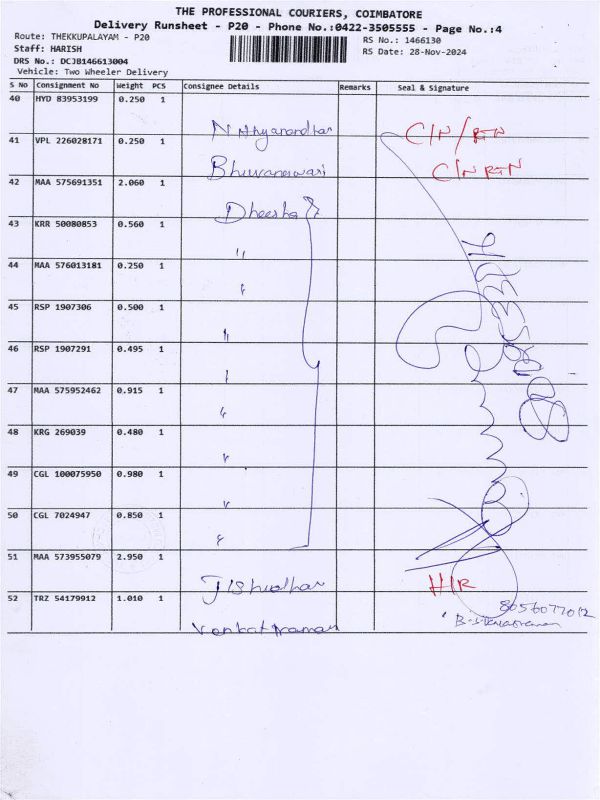 THE PROFESSIONAL COURIERS, COIMBATORE
Delivery Runsheet - P20 - Phone No.:0422-3505555 - Page No.:4
Route: THEKKUPALAYAM - P20
RS No.: 1466130
Staff: HARISH
RS Date: 28-Nov-2024
DRS No.: DCJB146613004
Vehicle: Two Wheeler Delivery
S No Consignment No Weight PCS Consignee Details Remarks Seal & Signature
40 HYD 83953199 0.250 1
C/N/
41 VPL 226028171 0.250 1
Bhuvaneswari C/N
42 MAA 575691351 2.060 1
Dheesha
43 KRR 50080853 0.560 1
"
44 MAA 576013181 0.250 1
"
45 RSP 1907306 0.500 1
"
46 RSP 1907291 0.495 1
"
47 MAA 575952462 0.915 1
"
48 KRG 269039 0.480 1
"
49 CGL 100075950 0.980 1
"
50 CGL 7024947 0.850 1
"
51 MAA 573955079 2.950 1
H/R
52 TRZ 54179912 1.010 1
Venkatraman